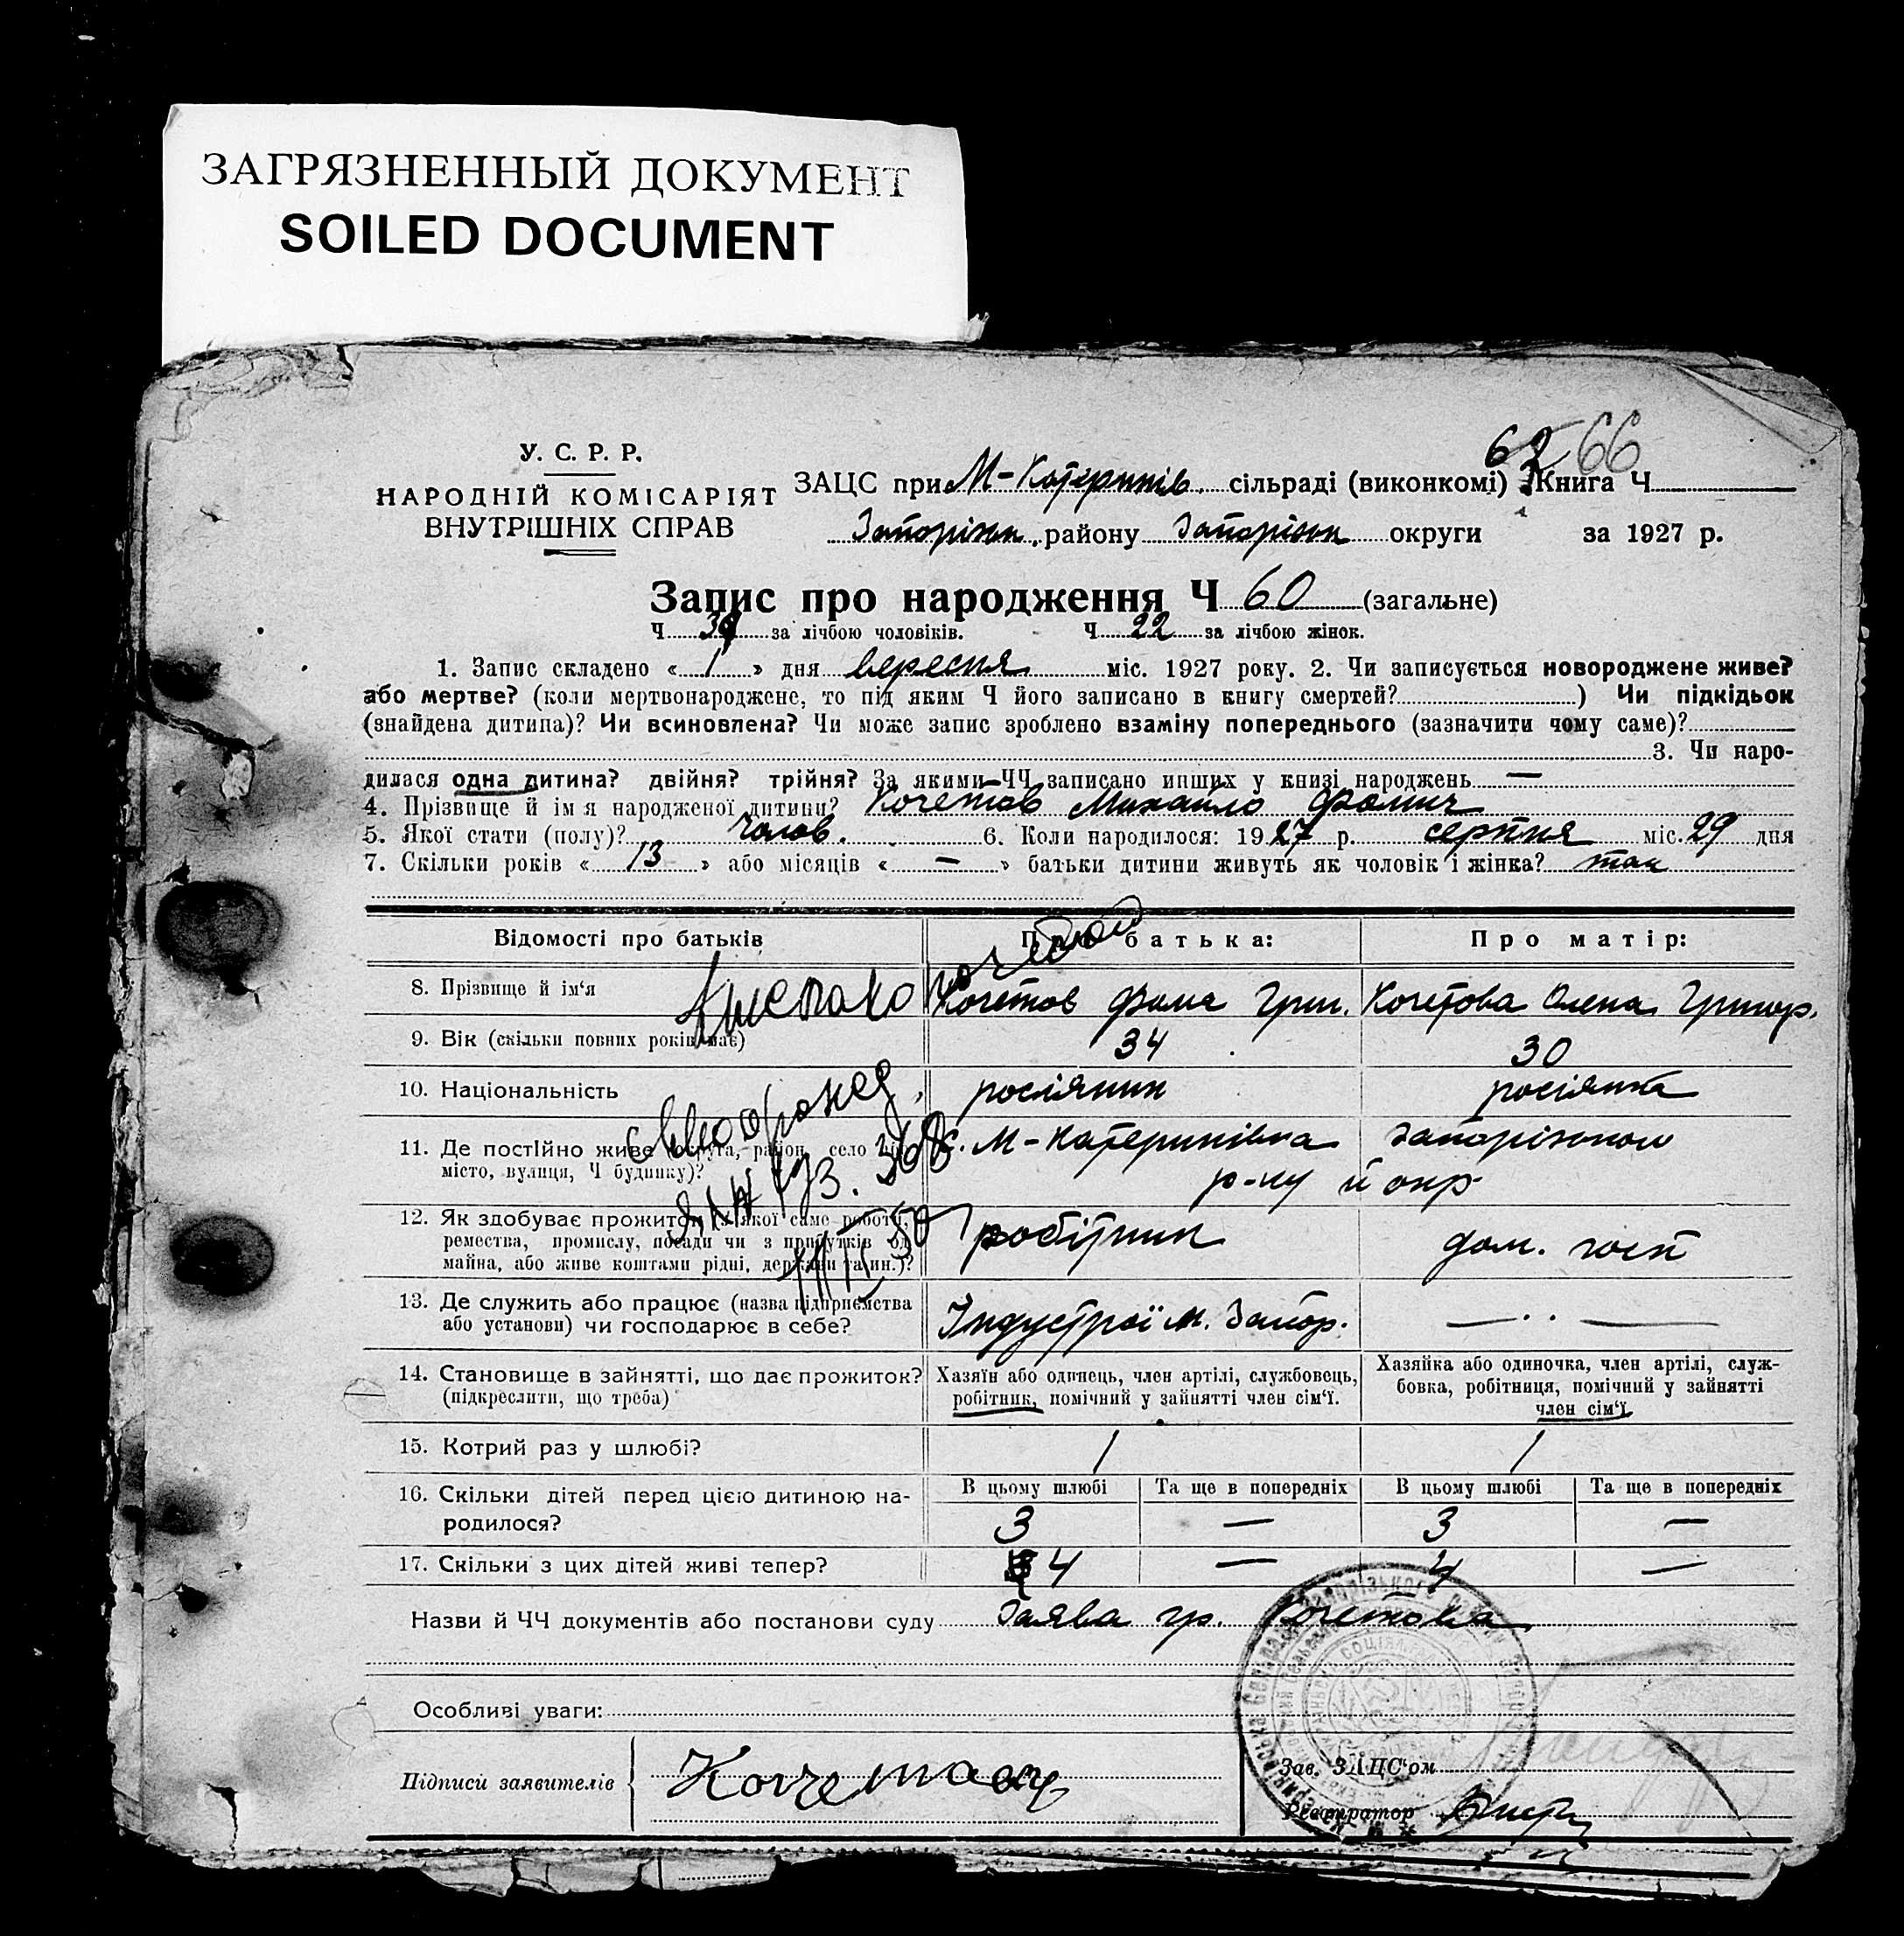 ЗАГРЯЗНЕННЫЙ ДОКУМЕНТ
SOILED DOCUMENT
66
У. С. Р. Р.
НАРОДНІЙ КОМІСАРІЯТ
ВНУТРІШНІХ СПРАВ
ЗАЦС при М-Катеринів. сільраді (виконкомі) Книга Ч
Запорізьк. району Запорізьк округи за 1927 р.
Запис про народження Ч 60 (загальне)
Ч за лічбою чоловіків. Ч 22 за лічбою жінок.
1. Запис складено « 1 » дня вересня міс. 1927 року. 2. Чи записується новороджене живе?
або мертве? (коли мертвонароджене, то під яким Ч його записано в книгу смертей? ) Чи підкідьок
(знайдена дитина)? Чи всиновлена? Чи може запис зроблено взаміну попереднього (зазначити чому саме)?
3. Чи наро-
дилася одна дитина? двійня? трійня? За якими ЧЧ записано инших у книзі народжень —
4. Прізвище й ім'я народженої дитини? Кочетов Михайло Фомич
5. Якої стати (полу)? чолов. 6. Коли народилося: 1927 р. серпня міс. 29 дня
7. Скільки років « 13 » або місяців « — » батьки дитини живуть як чоловік і жінка? так
Відомості про батьків Про батька: Про матір:
8. Прізвище й ім'я Кочетов Фома Григ. Кочетова Олена Григор.
9. Вік (скільки повних років має) 34 30
10. Національність росіянин росіянка
11. Де постійно живе (округа, район, село або с. М-Катеринівка Запорізького
місто, вулиця, Ч будинку)? р-ну й окр
12. Як здобуває прожиток (з якої саме роботи, робітник дом. госп
ремества, промислу, посади чи з прибутків од
майна, або живе коштами рідні, держави та ин.)?
13. Де служить або працює (назва підприємства Індустрої м. Запор. — · · —
або установи) чи господарює в себе?
14. Становище в зайнятті, що дає прожиток? Хазяїн або одинець, член артілі, службовець, Хазяйка або одиночка, член артілі, служ-
(підкреслити, що треба) робітник, помічний у зайнятті член сім'ї. бовка, робітниця, помічний у зайнятті
член сім'ї
15. Котрий раз у шлюбі? 1 1
В цьому шлюбі Та ще в попередніх В цьому шлюбі Та ще в попередніх
16. Скільки дітей перед цією дитиною на-
родилося? 3 — 3 —
17. Скільки з цих дітей живі тепер? 4 — 4 —
Назви й ЧЧ документів або постанови суду Заява гр. Кочетова
Особливі уваги:
Підписи заявителів
Зав. ЗАЦС'ом
Реєстратор